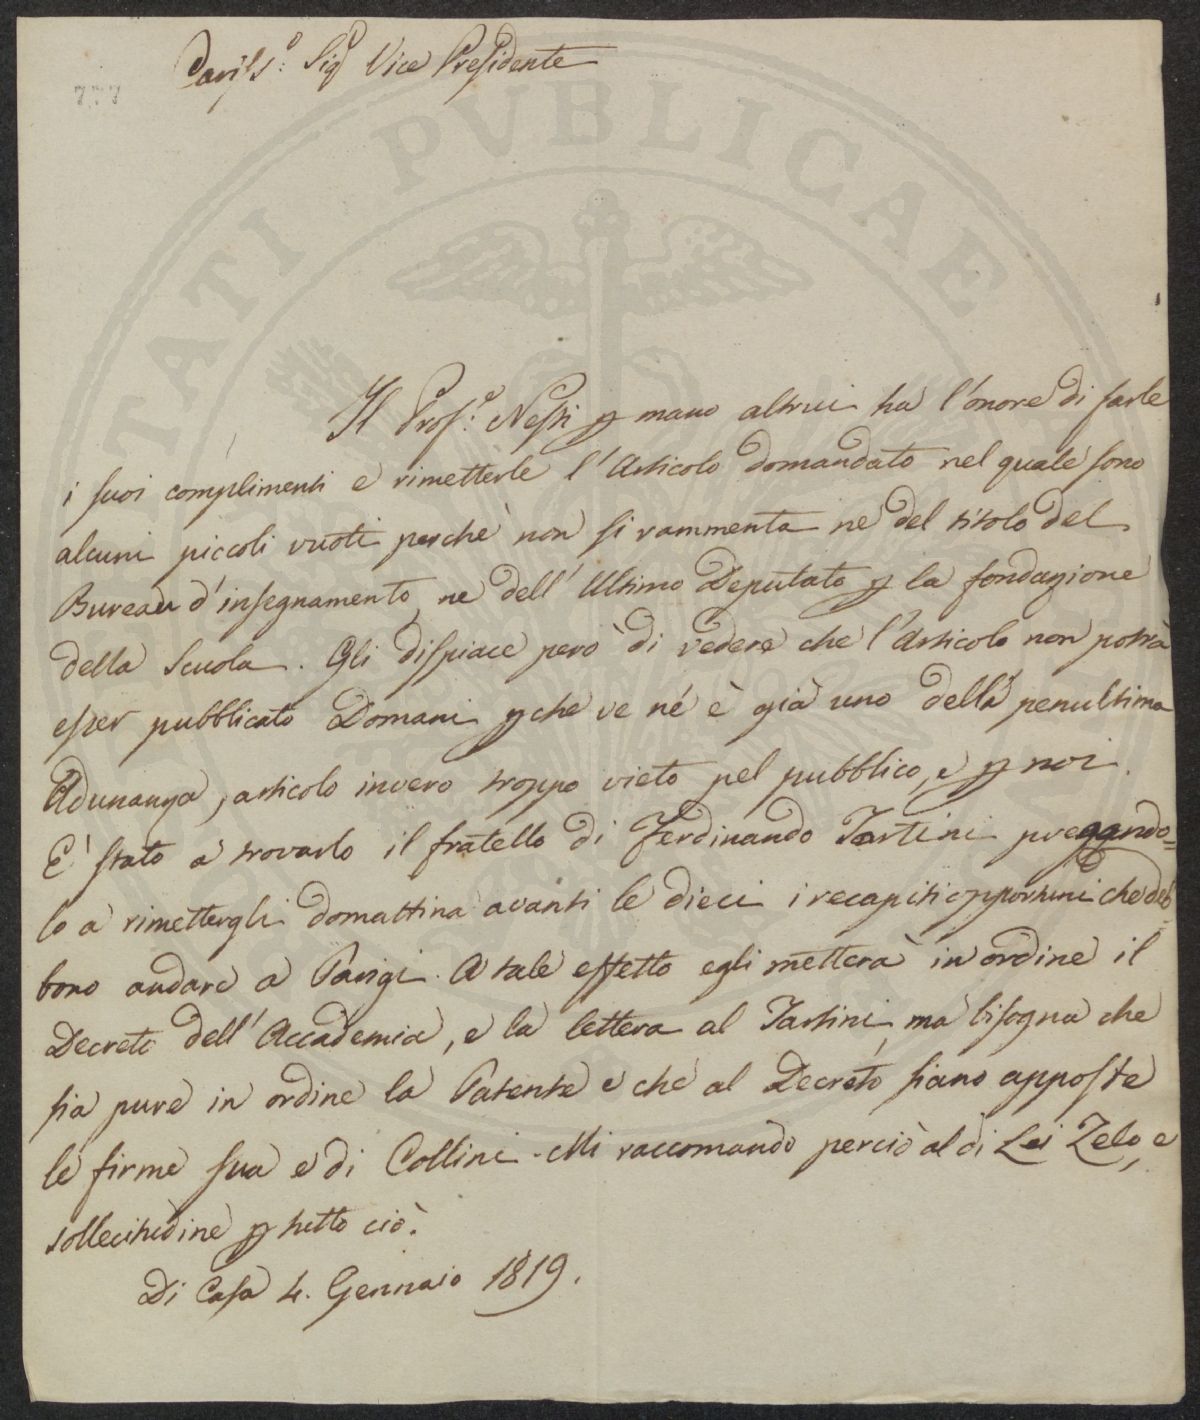 Cariss.º Sigr Vice Presidente
PVBLICAE
TATI
Il Prof.e Nesti p mano altrui ha l'onore di farle
i suoi complimenti e rimetterle l'Articolo domandato nel quale sono
alcuni piccoli vuoti perchè non si rammenta ne del titolo del
Bureau d'insegnamento, ne dell'Ultimo Deputato p la fondazione
della Scuola. Gli dispiace però di vedere che l'Articolo non potrà
esser pubblicato Domani pche ve né è già uno della penultima
Adunanza, articolo invero troppo vieto pel pubblico, e p noi.
E' stato a trovarlo il fratello di Ferdinando Tartini pregando=
lo a rimettergli domattina avanti le dieci i recapiti opportuni che deb
bono andare a Parigi. A tale effetto egli metterà in ordine il
Decreto dell'Accademia, e la lettera al Tartini, ma bisogna che
sia pure in ordine la Patente e che al Decreto siano apposte
le firme sua e di Collini. Mi raccomando perciò al di Lei Zelo, e
sollecitudine p tutto ciò.
Di Casa 4. Gennaio 1819.